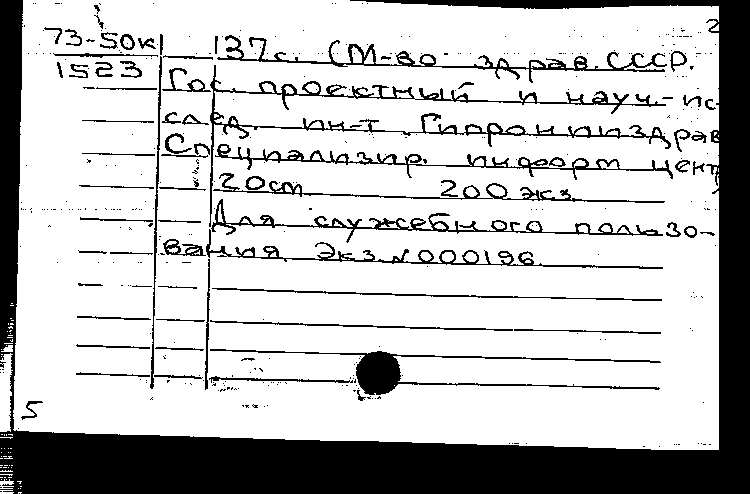 2
73-50к 137с. (М-во здрав. СССР.
1523 Гос. проектный и науч.-ис-
след. ин-т Гипронииздрав
Специализир. информ центр
20см 200 экз.
Для служебного пользо-
вания Экз. № 000196
5